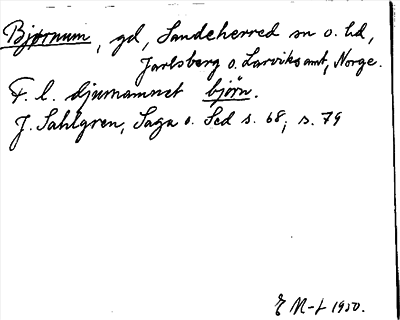 Bjørnum, gd, Sandeherred sn o. hd,
Jarlsberg o. Larviks amt, Norge.
F. l. djurnamnet björn.
J. Sahlgren, Saga o. Sed s. 68, s. 79
E M-t 1950.